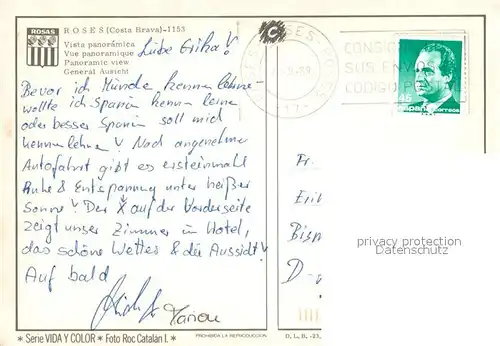 ROSAS
ROSES (Costa Brava)-1153
Vista panorámica
Vue panoramique
Panoramic view
General Ausicht
Liebe Erika!
Bevor ich
wollte ich Spanien kennen lerne
oder besser Spanien soll mich
kennenlernen! Nach angenehmer
Autofahrt gibt es ersteinmal
Ruhe & Entspannung unter heißer
Sonne! Der X auf der Vorderseite
zeigt unser Zimmer im Hotel,
das schöne Wetter & die Aussicht!
Auf bald
ROSES
CONSIG
SUS ENVIOS
CODIGO P
45
españa correos
Fr
Eri
Bisp
D-
privacy protection
delcampe.net
* Serie VIDA Y COLOR * Foto Roc Catalán I. *
PROHIBIDA LA REPRODUCCION
D. L. B. -23,